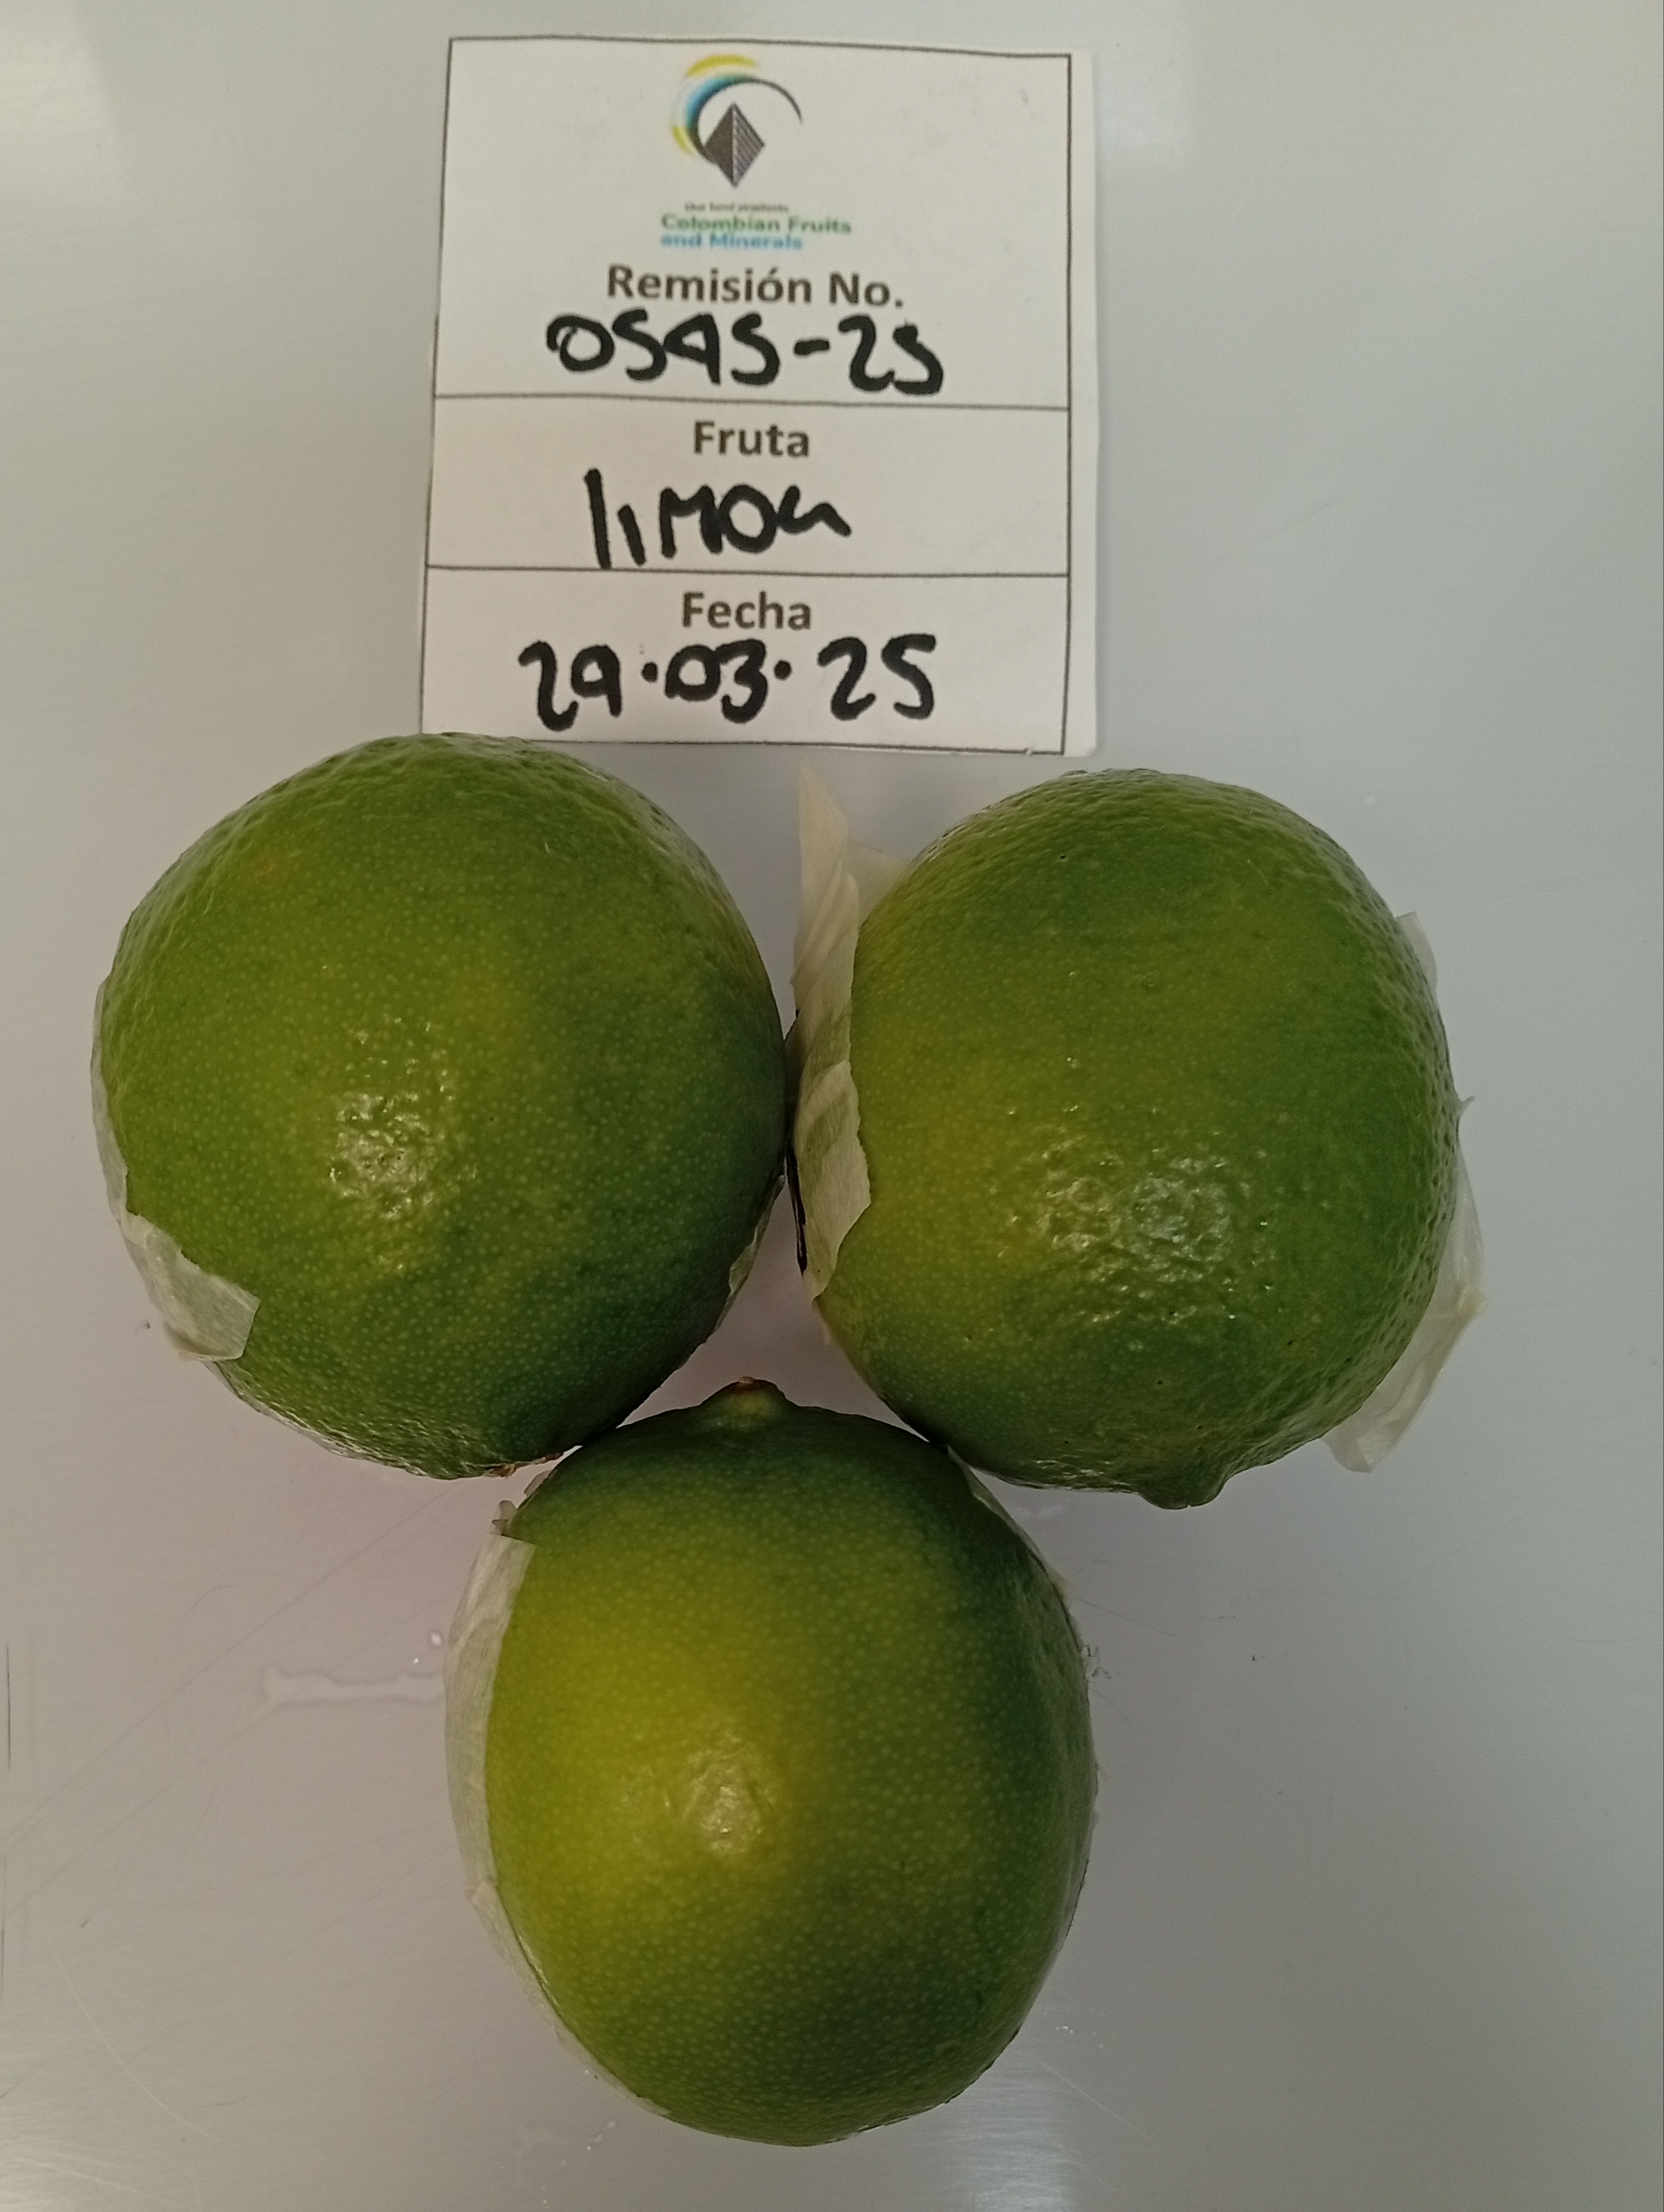 Colombian Fruits
and Minerals
Remisión No.
0545-25
Fruta
limon
Fecha
29.03.25